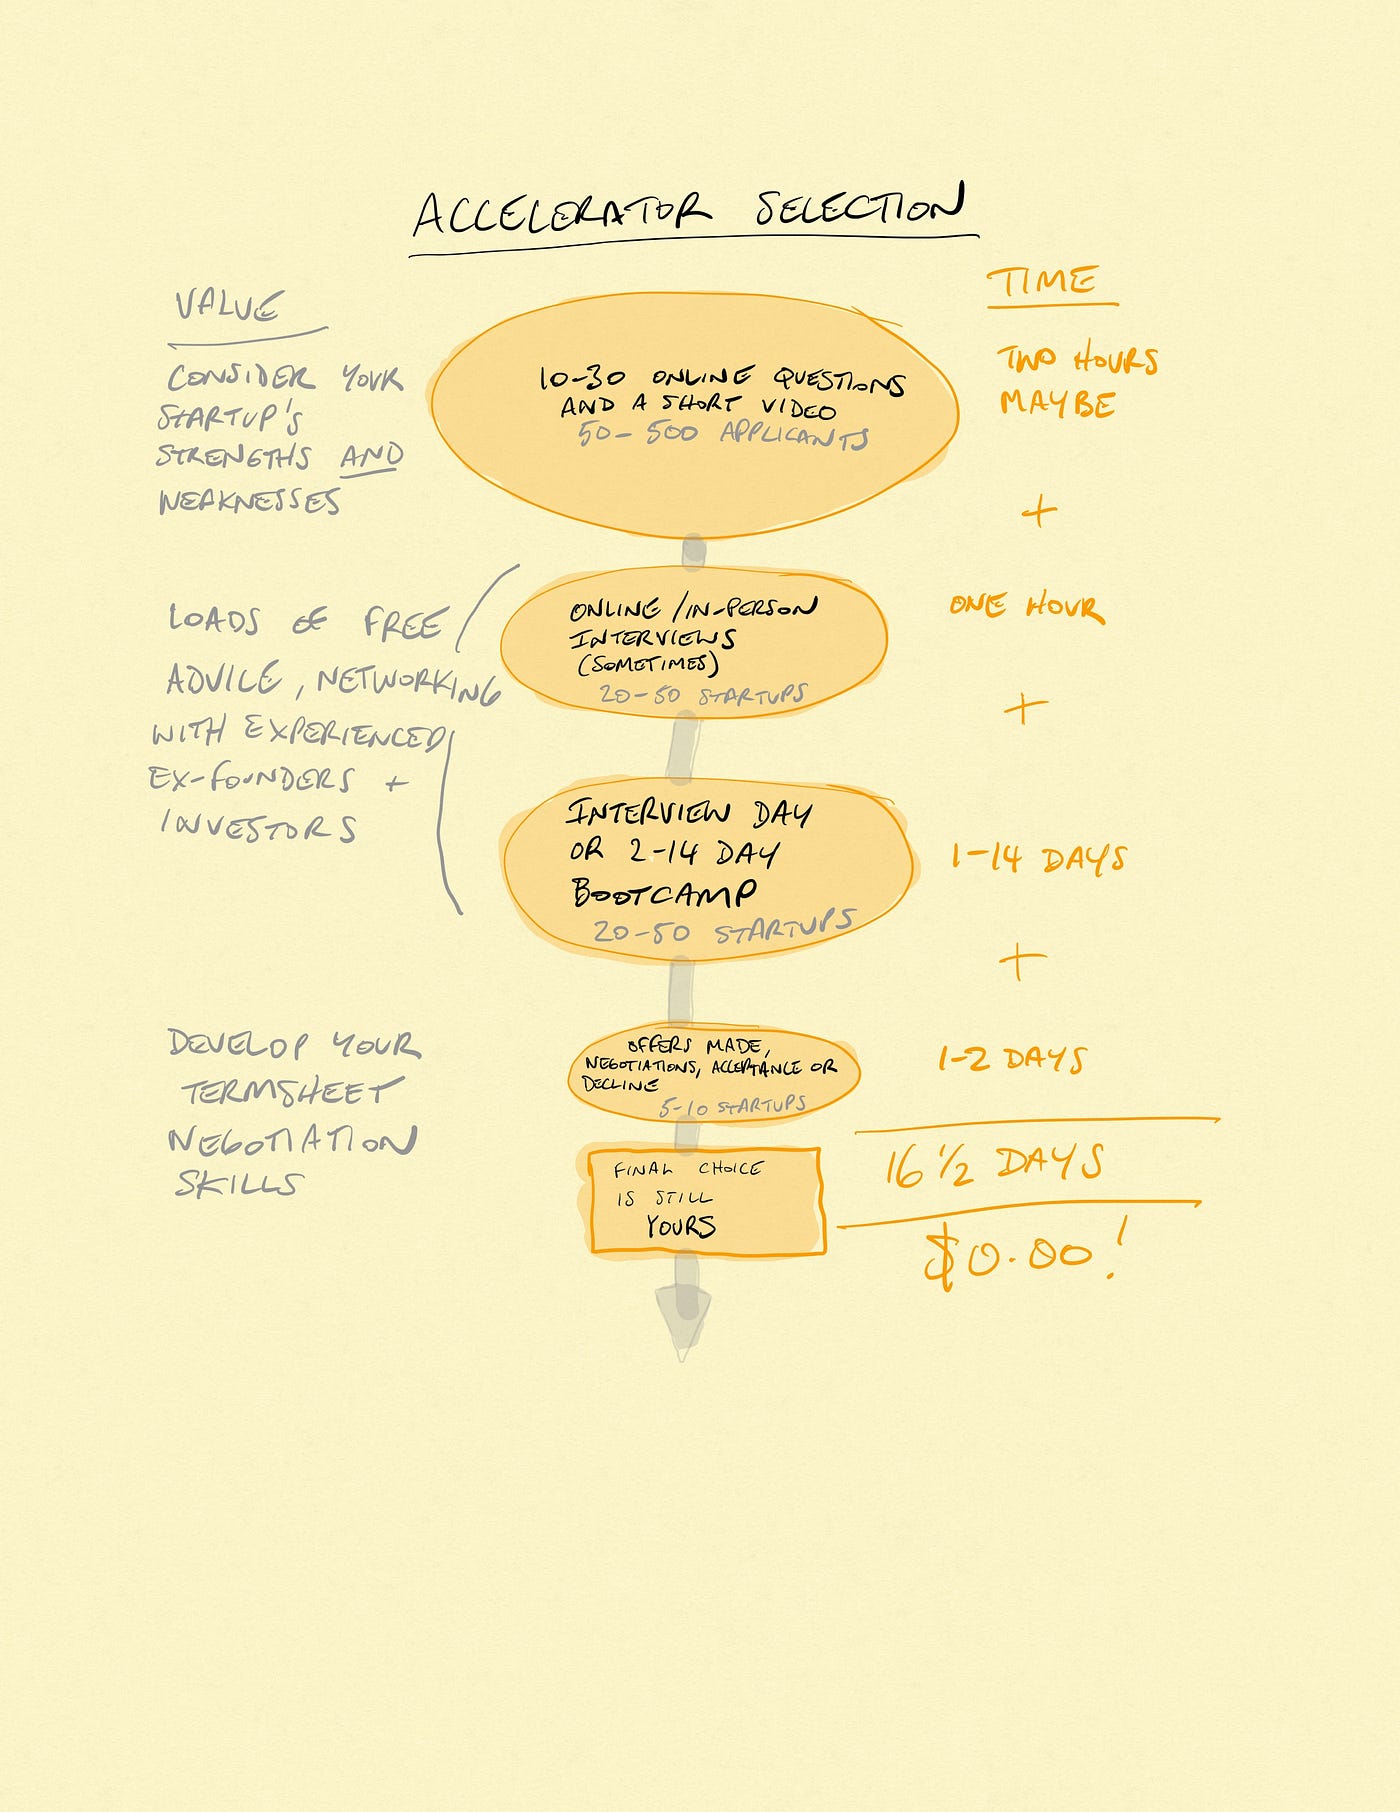 ACCELERATOR SELECTION
VALUE
CONSIDER YOUR
STARTUP'S
STRENGTHS AND
WEAKNESSES
LOADS OF FREE
ADVICE, NETWORKING
WITH EXPERIENCED
EX-FOUNDERS +
INVESTORS
DEVELOP YOUR
TERMSHEET
NEGOTIATION
SKILLS
10-30 ONLINE QUESTIONS
AND A SHORT VIDEO
50-500 APPLICANTS
ONLINE/IN-PERSON
INTERVIEWS
(SOMETIMES)
20-50 STARTUPS
INTERVIEW DAY
OR 2-14 DAY
BOOTCAMP
20-50 STARTUPS
OFFERS MADE,
NEGOTIATIONS, ACCEPTANCE OR
DECLINE
5-10 STARTUPS
FINAL CHOICE
IS STILL
YOURS
TIME
TWO HOURS
MAYBE
+
ONE HOUR
+
1-14 DAYS
+
1-2 DAYS
16 1/2 DAYS
$0.00!